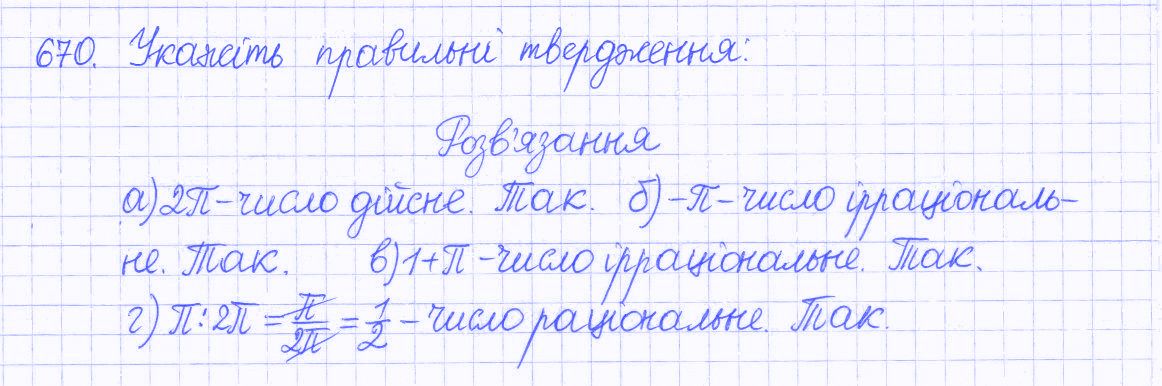 670. Укажіть правильні твердження:
Розв'язання
а) 2π – число дійсне. Так. б) –π – число ірраціональ-
не. Так. в) 1+π – число ірраціональне. Так.
г) π : 2π = π/2π = 1/2 – число раціональне. Так.